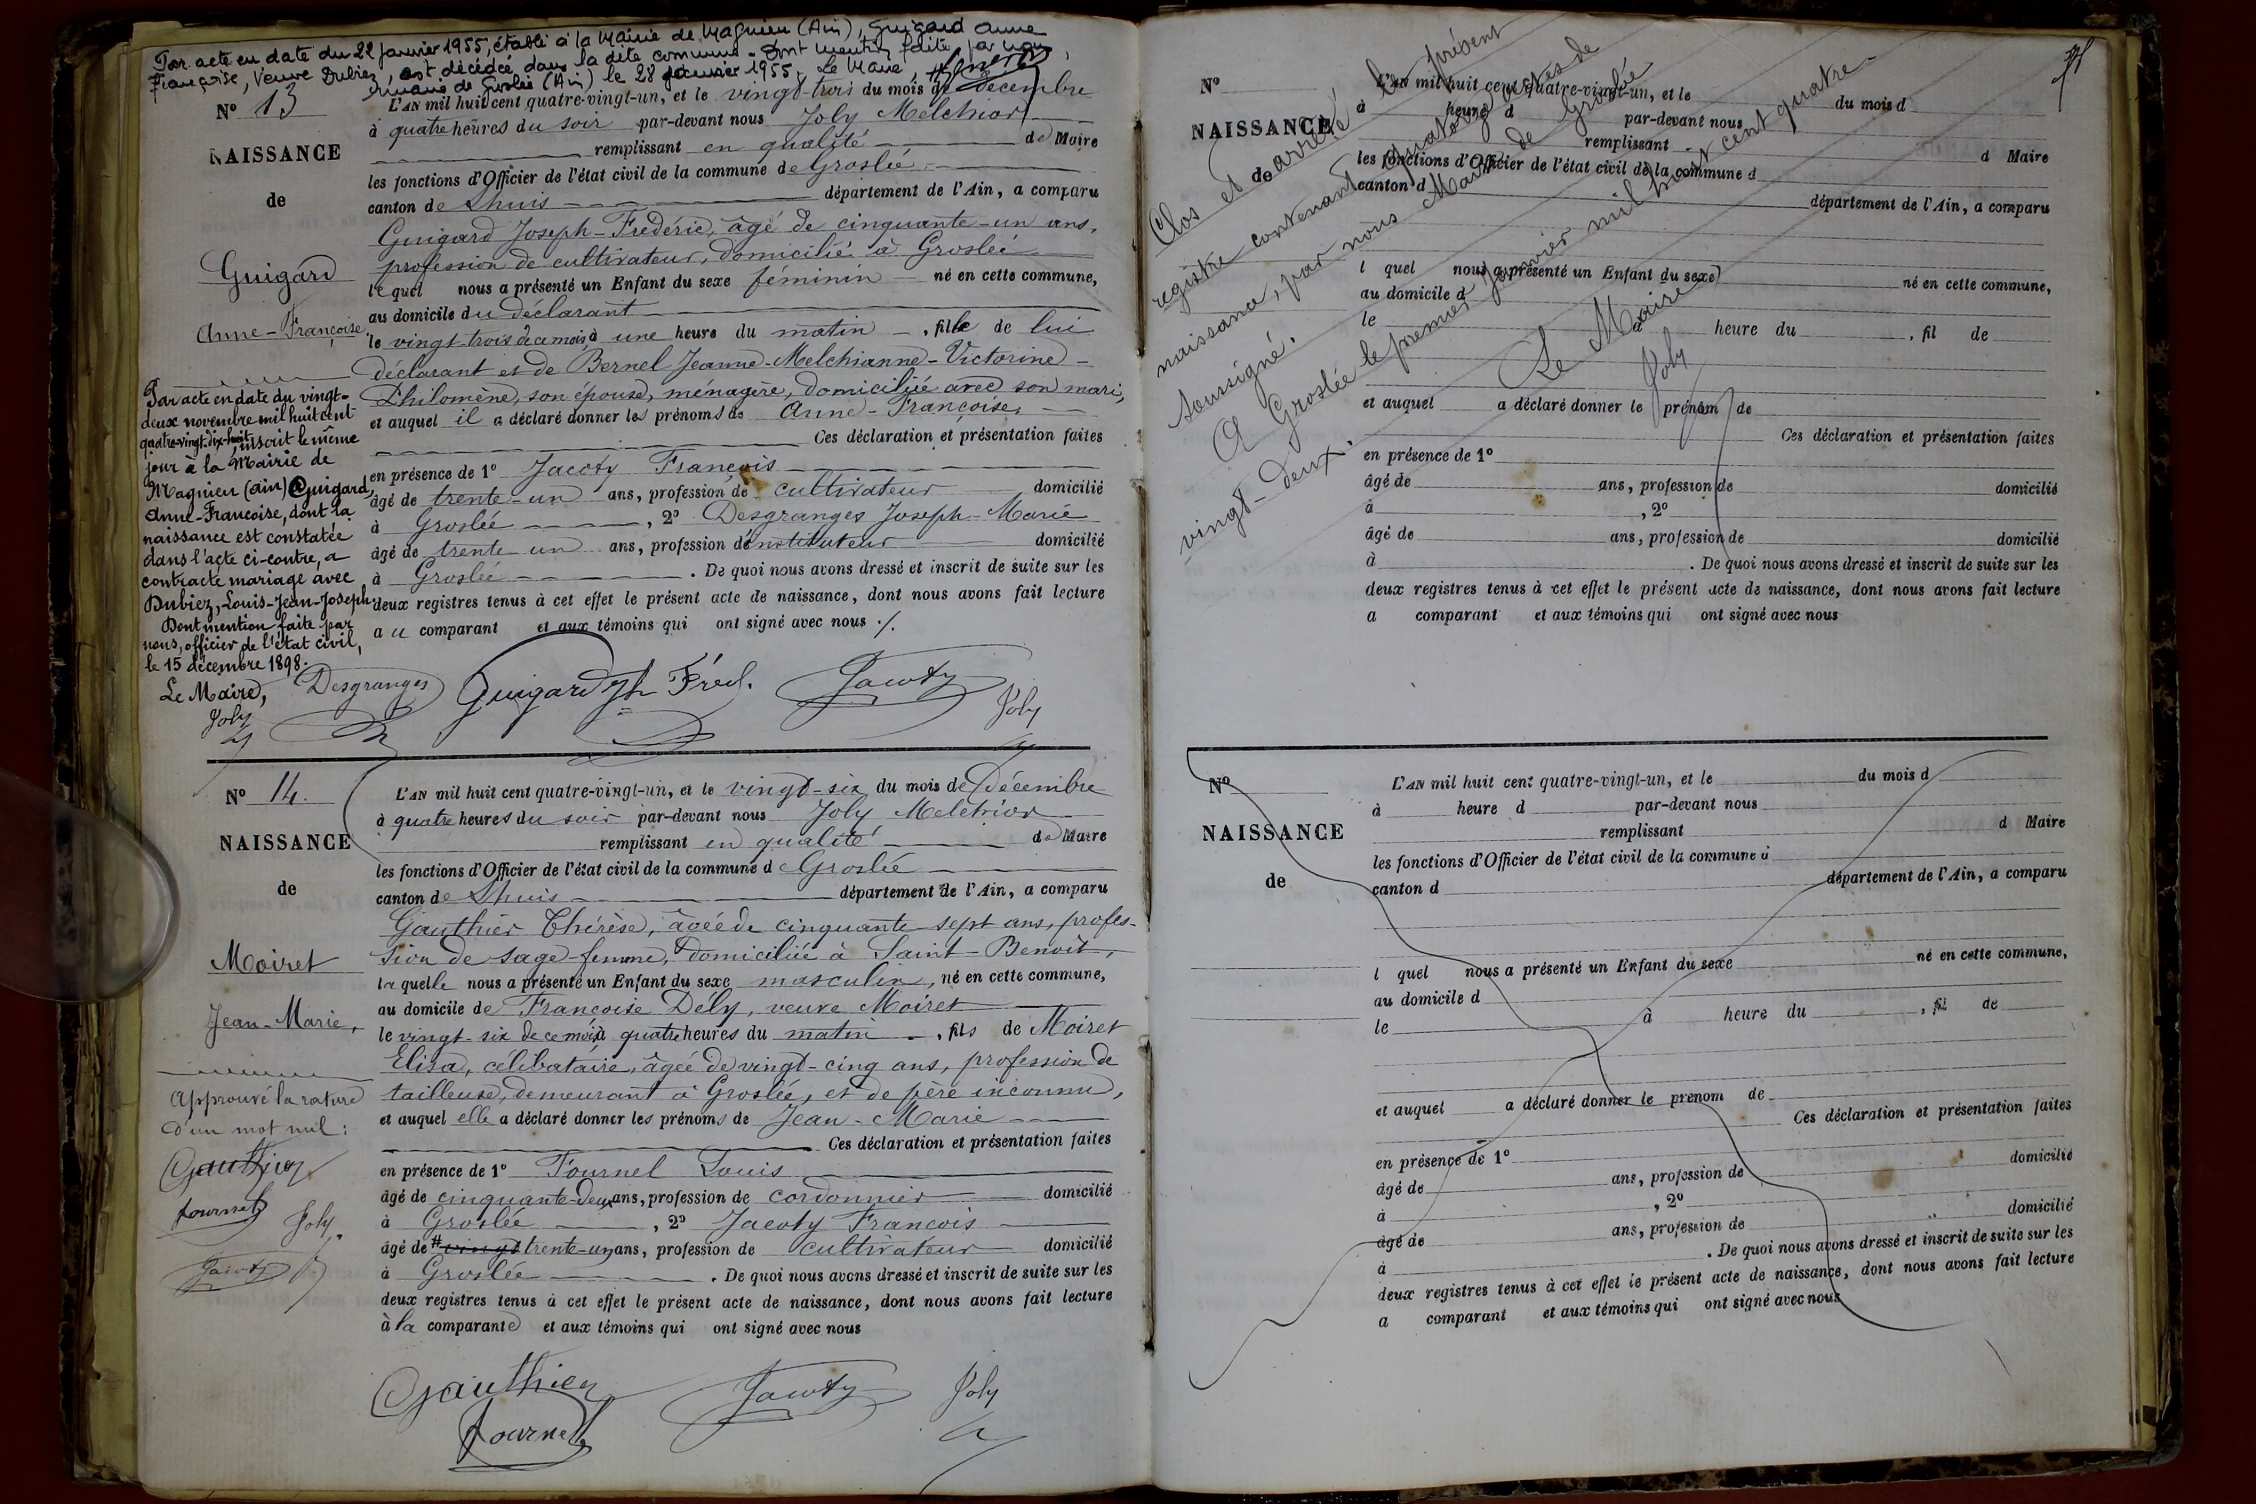 Par acte en date du 22 janvier 1955, établi à la Mairie de Magnieu (Ain), Guigard Anne
Françoise, Veuve Dubiez, est décédée dans la dite commune. Dont mention faite par nous,
maire de Groslée (Ain) le 28 janvier 1955. Le Maire,
N° 13
NAISSANCE
de
Guigard
Anne-Françoise
Par acte en date du vingt-
deux novembre mil huit cent
quatre-vingt-dix-huit, inscrit le même
jour à la Mairie de
Magnieu (Ain) Guigard,
Anne-Françoise, dont la
naissance est constatée
dans l'acte ci-contre, a
contracté mariage avec
Dubiez, Louis-Jean-Joseph
Dont mention faite par
nous, officier de l'état civil,
le 15 décembre 1898.
Le Maire,
Joly
L'AN mil huit cent quatre-vingt-un, et le vingt-trois du mois de Décembre
à quatre heures du soir par-devant nous Joly Melchior
remplissant en qualité de Maire
les fonctions d'Officier de l'état civil de la commune de Groslée
canton de Lhuis département de l'Ain, a comparu
Guigard Joseph-Frédéric, âgé de cinquante-un ans,
profession de cultivateur, domicilié à Groslée
lequel nous a présenté un Enfant du sexe féminin né en cette commune,
au domicile du déclarant
le vingt-trois de ce mois à une heure du matin, fille de lui
déclarant et de Bernel Jeanne-Melchianne-Victorine-
Philomène, son épouse, ménagère, domiciliée avec son mari,
et auquel il a déclaré donner les prénoms de Anne-Françoise,
Ces déclaration et présentation faites
en présence de 1° Jacoty François
âgé de trente-un ans, profession de cultivateur domicilié
à Groslée, 2° Desgranges Joseph-Marie
âgé de trente un ans, profession d'instituteur domicilié
à Groslée. De quoi nous avons dressé et inscrit de suite sur les
deux registres tenus à cet effet le présent acte de naissance, dont nous avons fait lecture
au comparant et aux témoins qui ont signé avec nous ./.
Desgranges Guigard Jph Fréd. Jacoty Joly
N° 14.
NAISSANCE
de
Moiret
Jean-Marie,
Approuvé la rature
d'un mot nul :
Gauthier
Fournel Joly.
Jacoty
L'AN mil huit cent quatre-vingt-un, et le vingt-six du mois de Décembre
à quatre heures du soir par-devant nous Joly Melchior
remplissant en qualité de Maire
les fonctions d'Officier de l'état civil de la commune de Groslée
canton de Lhuis département de l'Ain, a comparu
Gauthier Thérèse, âgée de cinquante sept ans, profes-
sion de sage-femme, domiciliée à Saint-Benoît,
laquelle nous a présenté un Enfant du sexe masculin, né en cette commune,
au domicile de Françoise Dély, veuve Moiret
le vingt-six de ce mois à quatre heures du matin, fils de Moiret
Elisa, célibataire, âgée de vingt-cinq ans, profession de
tailleuse, demeurant à Groslée, et de père inconnu,
et auquel elle a déclaré donner les prénoms de Jean-Marie
Ces déclaration et présentation faites
en présence de 1° Fournel Louis
âgé de cinquante-deux ans, profession de cordonnier domicilié
à Groslée, 2° Jacoty François
âgé de vingt trente-un ans, profession de cultivateur domicilié
à Groslée. De quoi nous avons dressé et inscrit de suite sur les
deux registres tenus à cet effet le présent acte de naissance, dont nous avons fait lecture
à la comparante et aux témoins qui ont signé avec nous
Gauthier Jacoty Joly
Fournel
Clos et arrêté le présent
registre contenant quatorze actes de
naissance, par nous Maire de Groslée
soussigné.
A Groslée le premier janvier mil huit cent quatre-
vingt-deux.
Le Maire
Joly
N°
NAISSANCE
de
L'AN mil huit cent quatre-vingt-un, et le du mois d
à heure d par-devant nous
remplissant d Maire
les fonctions d'Officier de l'état civil de la commune d
canton d département de l'Ain, a comparu
l quel nous a présenté un Enfant du sexe né en cette commune,
au domicile d
le à heure du , fil de
et auquel a déclaré donner le prénom de
Ces déclaration et présentation faites
en présence de 1°
âgé de ans, profession de domicilié
à , 2°
âgé de ans, profession de domicilié
à . De quoi nous avons dressé et inscrit de suite sur les
deux registres tenus à cet effet le présent acte de naissance, dont nous avons fait lecture
a comparant et aux témoins qui ont signé avec nous
N°
NAISSANCE
de
L'AN mil huit cent quatre-vingt-un, et le du mois d
à heure d par-devant nous
remplissant d Maire
les fonctions d'Officier de l'état civil de la commune d
canton d département de l'Ain, a comparu
l quel nous a présenté un Enfant du sexe né en cette commune,
au domicile d
le à heure du , fil de
et auquel a déclaré donner le prénom de
Ces déclaration et présentation faites
en présence de 1°
âgé de ans, profession de domicilié
à , 2°
âgé de ans, profession de domicilié
à . De quoi nous avons dressé et inscrit de suite sur les
deux registres tenus à cet effet le présent acte de naissance, dont nous avons fait lecture
a comparant et aux témoins qui ont signé avec nous